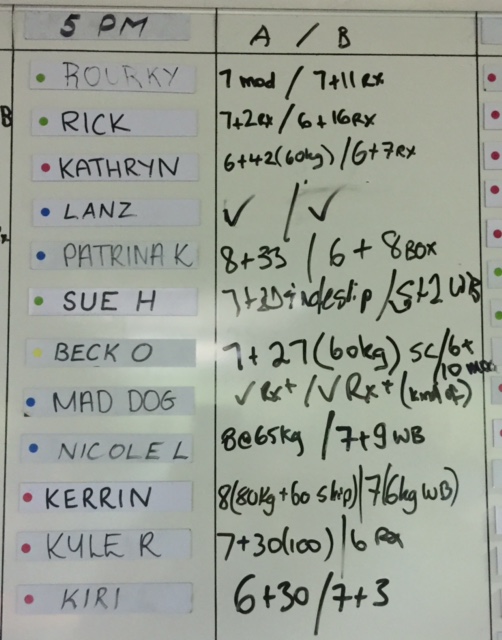 5 PM A / B
ROURKY 7 mod / 7+11 Rx
RICK 7+2Rx / 6+16Rx
KATHRYN 6+42(60kg) / 6+7Rx
LANZ ✓ / ✓
PATRINA K 8+33 / 6 + 8 BOX
SUE H / 5+2 WB
BECK O 7+27(60kg) SC/6+
10 mod
MAD DOG ✓ Rx+ / ✓ Rx+ (kind of)
NICOLE L 8@65kg / 7+9 WB
KERRIN 8(80kg+60 skip) / 7(6kg WB)
KYLE R 7+30(100) / 6 Rx
KIRI 6+30 / 7+3
B